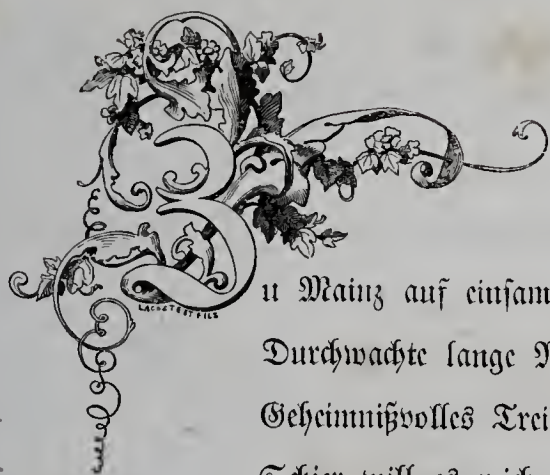 Zu Mainz auf einsam
Durchwachte lange N
Geheimnißvolles Trei